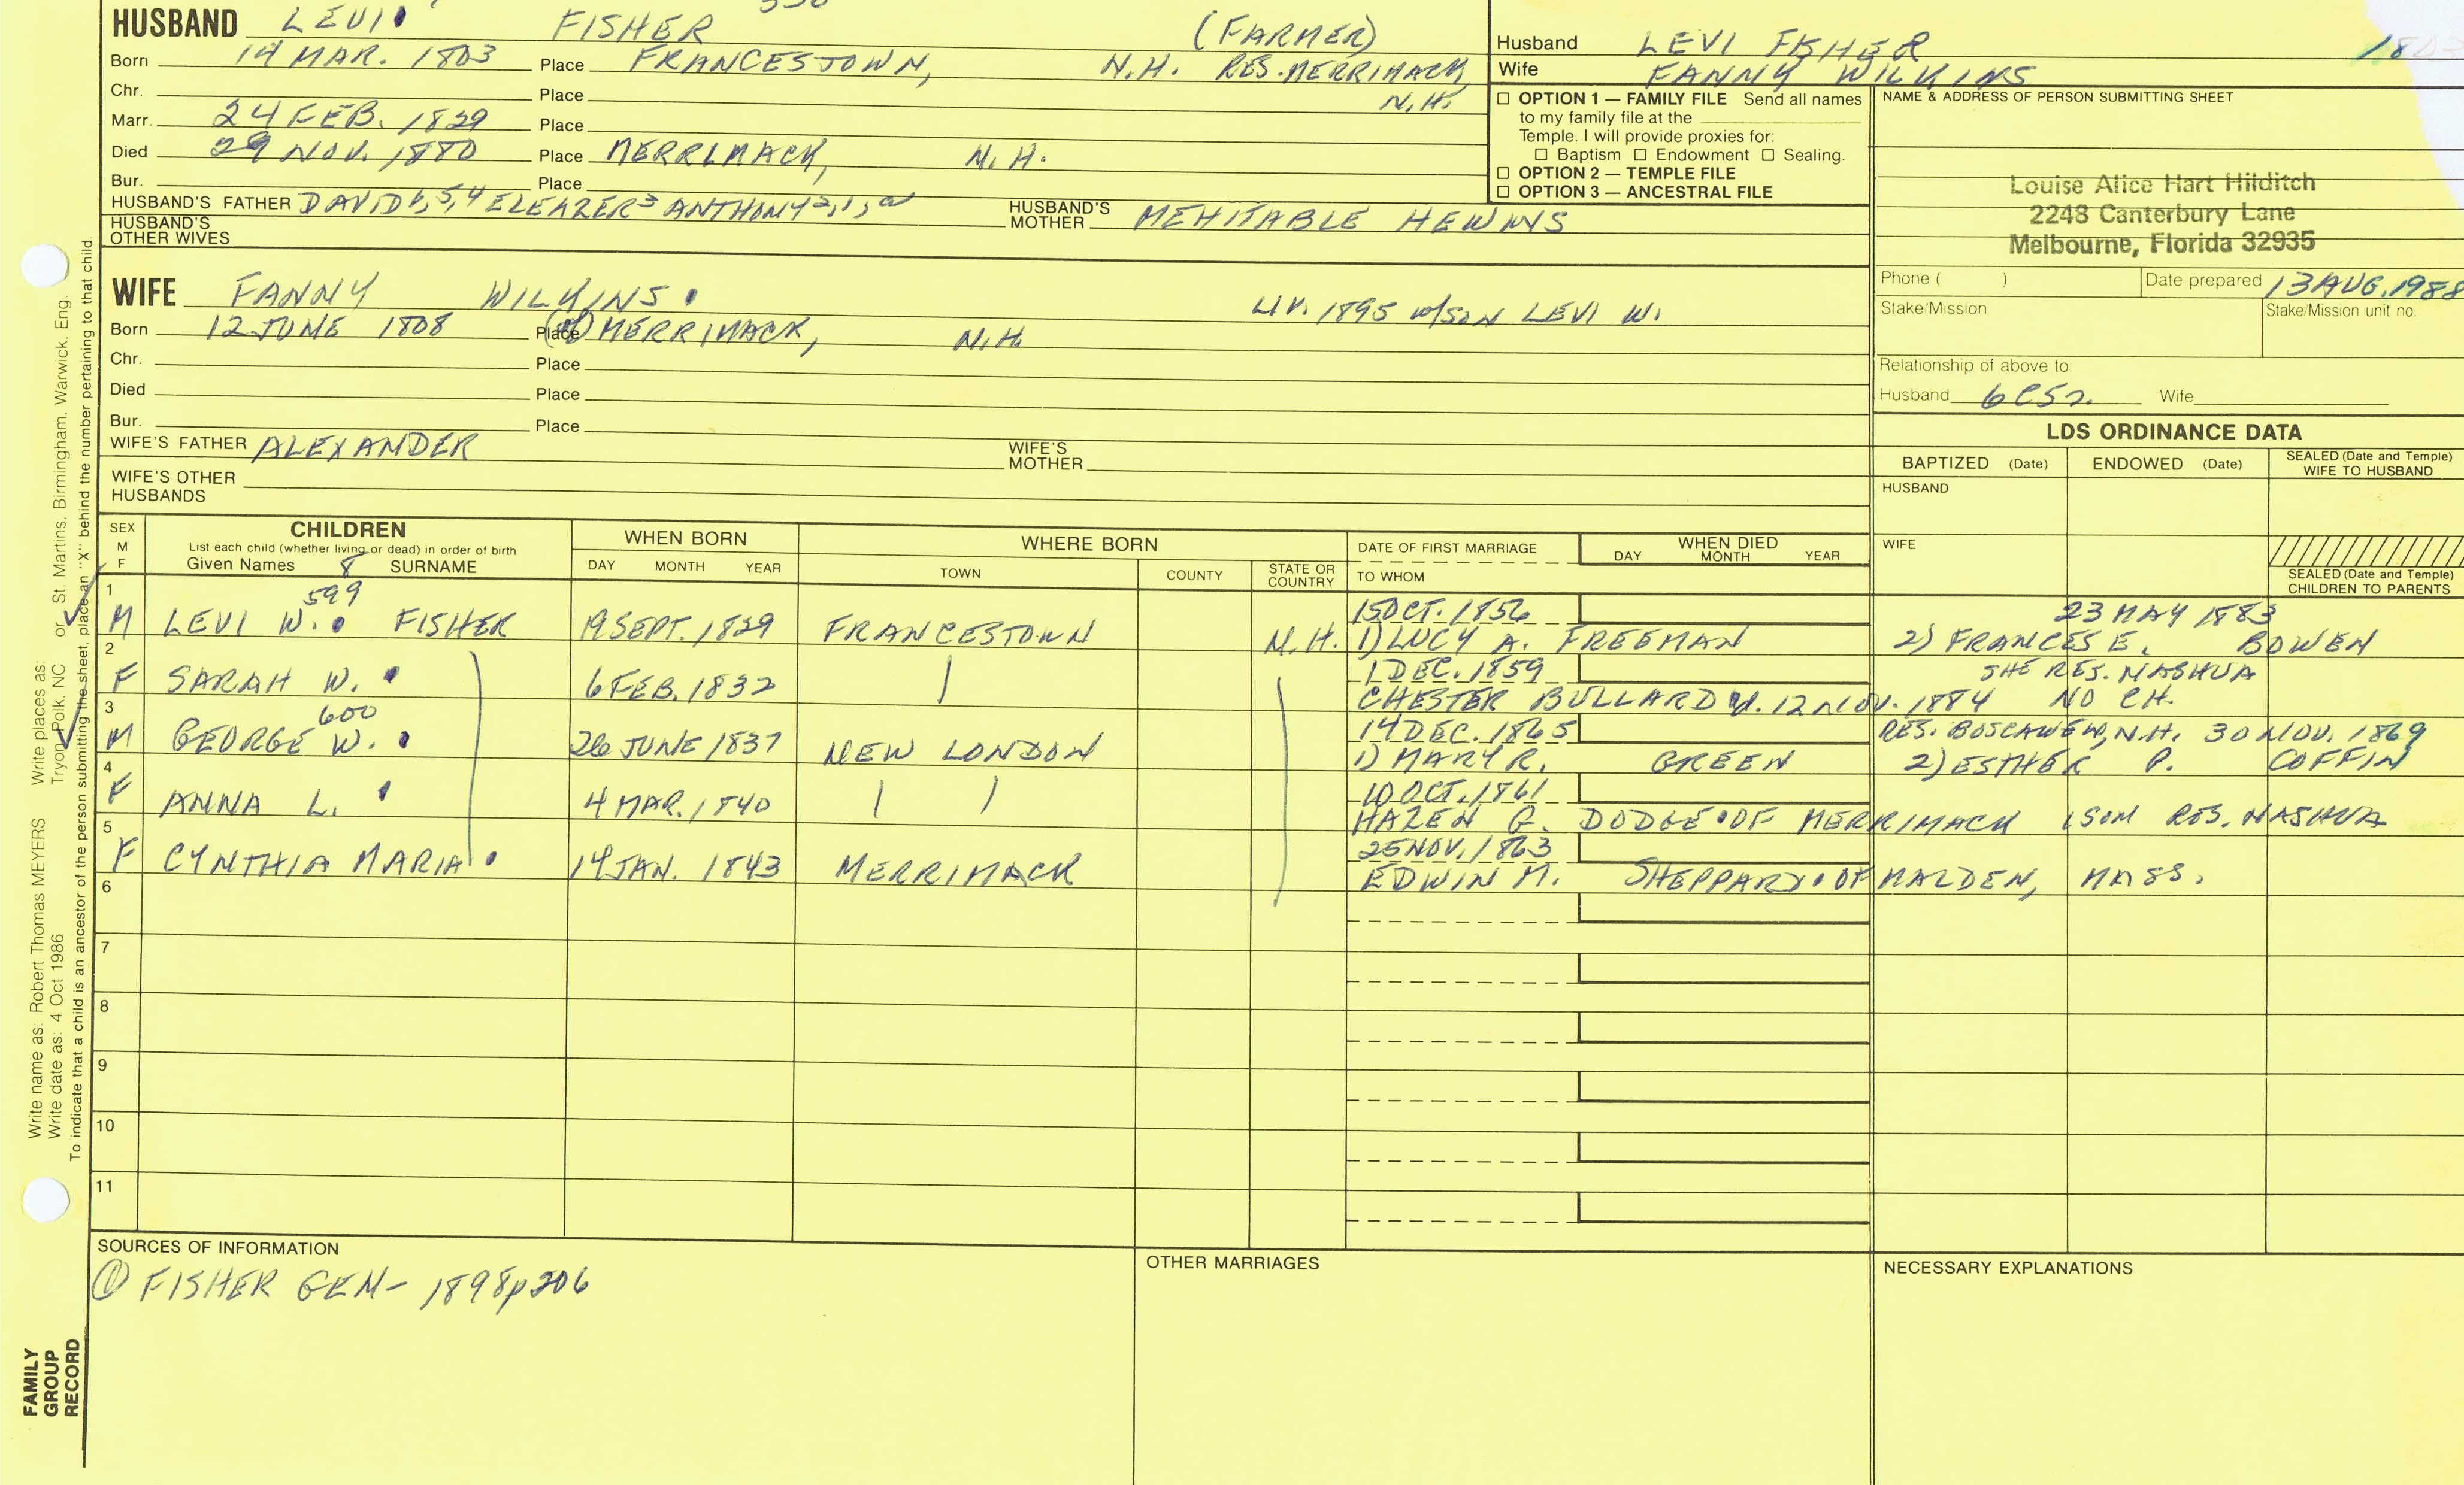 HUSBAND LEVI FISHER (FARMER)
Born 14 MAR. 1803 Place FRANCESTOWN, N.H. RES. MERRIMACK, N.H.
Chr. Place
Marr. 24 FEB. 1829 Place
Died 29 NOV. 1880 Place MERRIMACK, N.H.
Bur. Place
HUSBAND'S FATHER DAVID 6,5,4 ELEAZER 3 ANTHONY 2,1,a HUSBAND'S MOTHER MEHITABLE HEWINS
HUSBAND'S OTHER WIVES
Husband LEVI FISHER 1803
Wife FANNY WILKINS
☐ OPTION 1 — FAMILY FILE Send all names
to my family file at the
Temple. I will provide proxies for:
☐ Baptism ☐ Endowment ☐ Sealing.
☐ OPTION 2 — TEMPLE FILE
☐ OPTION 3 — ANCESTRAL FILE
NAME & ADDRESS OF PERSON SUBMITTING SHEET
Louise Alice Hart Hilditch
2248 Canterbury Lane
Melbourne, Florida 32935
Phone ( ) Date prepared 13 AUG. 1988
Stake/Mission Stake/Mission unit no.
Relationship of above to
Husband 6C5R. Wife
WIFE FANNY WILKINS. LIV. 1895 w/SON LEVI W.
Born 12 JUNE 1808 Place (OF) MERRIMACK, N.H.
Chr. Place
Died Place
Bur. Place
WIFE'S FATHER ALEXANDER WIFE'S MOTHER
WIFE'S OTHER HUSBANDS
LDS ORDINANCE DATA
BAPTIZED (Date) ENDOWED (Date) SEALED (Date and Temple) WIFE TO HUSBAND
HUSBAND
WIFE
SEALED (Date and Temple) CHILDREN TO PARENTS
SEX M F
CHILDREN
List each child (whether living or dead) in order of birth
Given Names 8 SURNAME
WHEN BORN
DAY MONTH YEAR
WHERE BORN
TOWN COUNTY STATE OR COUNTRY
DATE OF FIRST MARRIAGE
TO WHOM
WHEN DIED
DAY MONTH YEAR
1 599 15 OCT. 1856 23 MAY 1883
M LEVI W. FISHER 19 SEPT. 1829 FRANCESTOWN N.H. 1) LUCY A. FREEMAN 2) FRANCES E. BOWEN
2 1 DEC. 1859 SHE RES. NASHUA
F SARAH W. 6 FEB. 1832 CHESTER BULLARD d. 12 NOV. 1884 NO CH.
3 600 14 DEC. 1865 RES. BOSCAWEN, N.H. 30 NOV. 1869
M GEORGE W. 26 JUNE 1837 NEW LONDON 1) MARY R. GREEN 2) ESTHER P. COFFIN
4 10 OCT. 1861
F ANNA L. 4 MAR. 1840 HAZEN G. DODGE OF MERRIMACK 1 SON RES. NASHUA
5 25 NOV. 1863
F CYNTHIA MARIA 14 JAN. 1843 MERRIMACK EDWIN M. SHEPPARD OF MALDEN, MASS.
6
7
8
9
10
11
SOURCES OF INFORMATION
① FISHER GEN- 1898 p206
OTHER MARRIAGES
NECESSARY EXPLANATIONS
Write name as: Robert Thomas MEYERS Write places as:
Write date as: 4 Oct 1986 Tryon, Polk, NC or St. Martins, Birmingham, Warwick, Eng.
To indicate that a child is an ancestor of the person submitting the sheet, place an "X" behind the number pertaining to that child.
FAMILY
GROUP
RECORD